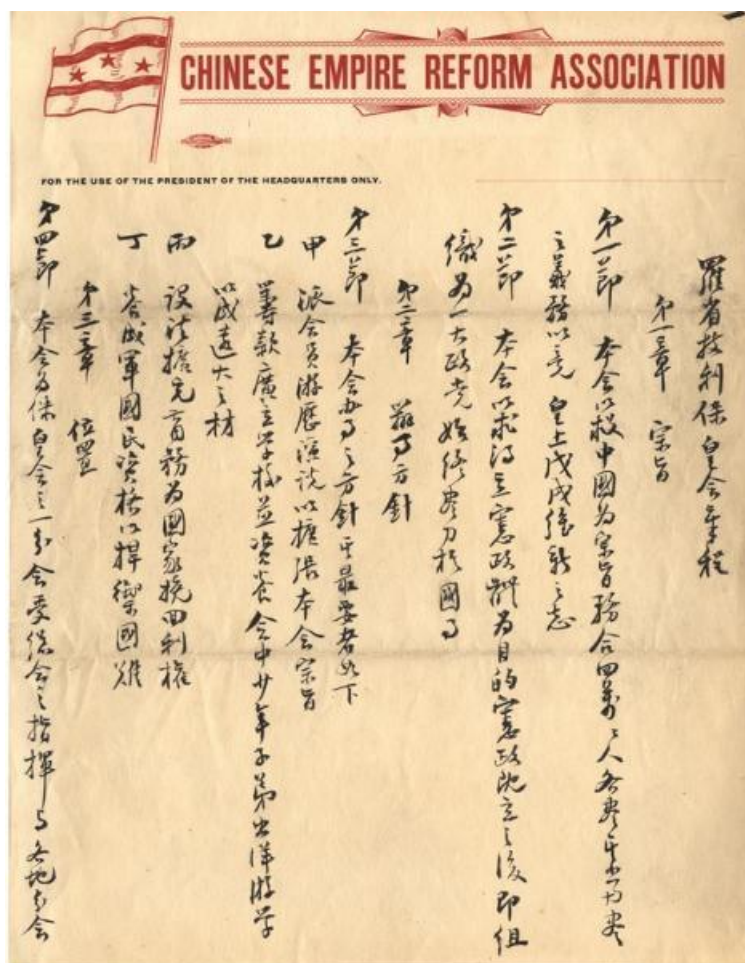 CHINESE EMPIRE REFORM ASSOCIATION
FOR THE USE OF THE PRESIDENT OF THE HEADQUARTERS ONLY.
羅省技利保皇會章程
第一章 宗旨
第一節 本会以救中國為宗旨務合四萬〻人各尽其所当尽
之義務以竟 皇上戊戌維新之志
第二節 本会以求得立憲政體為目的憲政既立之後即組
織為一大政党始終尽力於國事
第二章 辦事方針
第三節 本会办事之方針其最要者如下
甲 派会員游歷演説以擴張本会宗旨
乙 籌款廣立学校並資養会中少年子弟出洋游学
以成遠大之材
丙 設法擴充商務為國家挽回利權
丁 養成軍國民資格以捍禦國難
第三章 位置
第四節 本会為保皇会之一分会受總会之指揮与各地分会